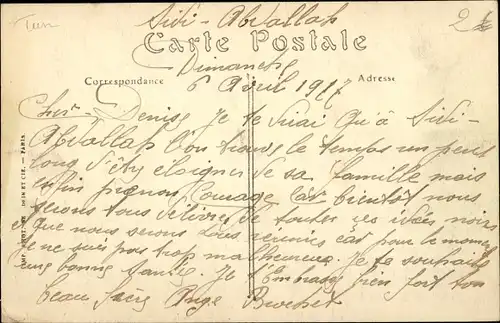 Tun
Sidi-Abdallah
2
Carte Postale
Dimanche
Correspondance
6 Avril 1917
Adresse
Cher Denise Je te dirai Qu'à Sidi-
Abdallah l'on trouve le temps un peut
long d's'êty eloigner de sa famille mais
enfin prenons Courage Car bientôt nous
serons tous délivrer de toutes ces idées noires
Que nous serons tous réunies car pour le moment
Je ne suis pas trop malheureux. Je te souhaite
une bonne santée. Je t'Embrasse bien fort ton
beau frère Ange
IMP. PHOT. NEURDEIN ET CIE. — PARIS